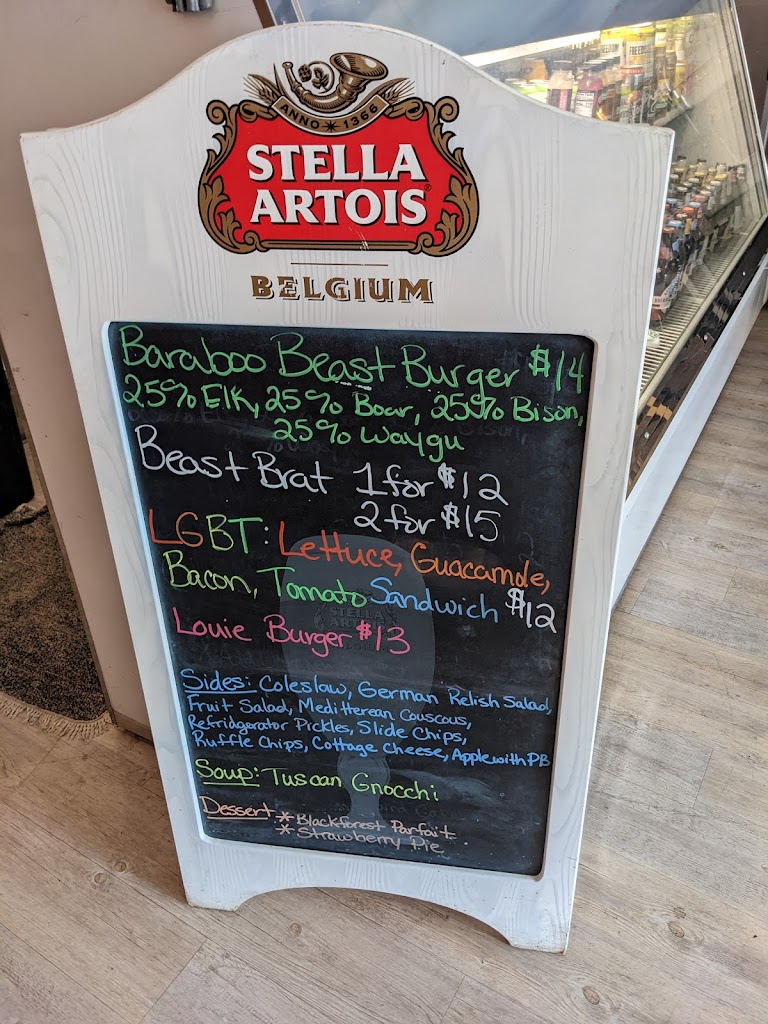 ANNO ✶ 1366
STELLA
ARTOIS®
BELGIUM
Baraboo Beast Burger $14
25% Elk, 25% Boar, 25% Bison,
25% Waygu
Beast Brat 1 for $12
2 for $15
LGBT: Lettuce, Guacamole,
Bacon, Tomato Sandwich $12
Louie Burger $13
Sides: Coleslaw, German Relish Salad,
Fruit Salad, Meditterean Couscous,
Refridgorator Pickles, Slide Chips,
Ruffle Chips, Cottage Cheese, Apple with PB
Soup: Tuscan Gnocchi
Dessert * Blackforest Parfait
* Strawberry Pie
STELLA
ARTOIS